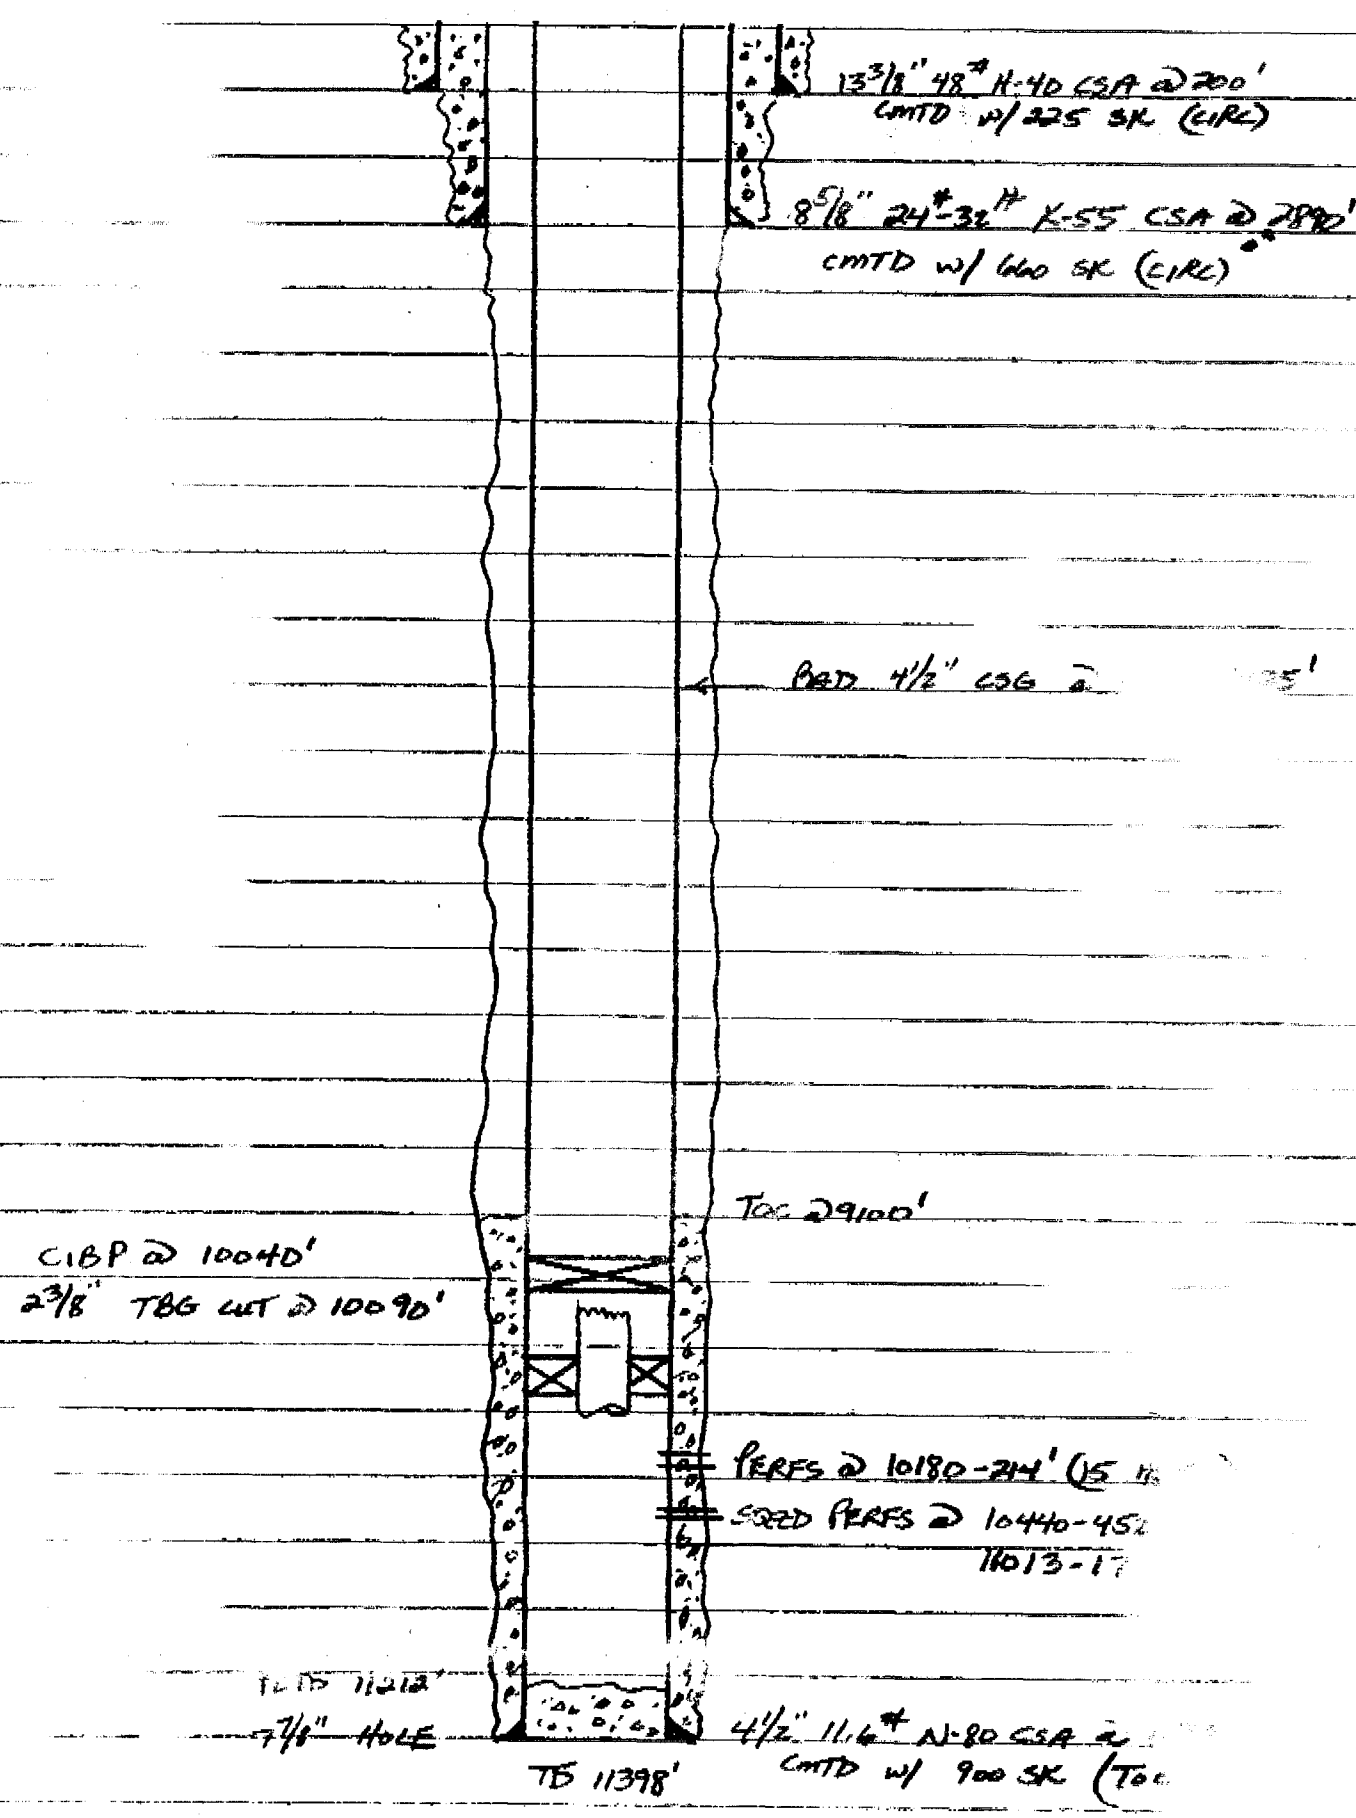 13 3/8" 48# H-40 CSA @ 200'
CMTD w/ 225 SK (CIRC)
8 5/8" 24#-32# K-55 CSA @ 2890'
CMTD w/ 660 SK (CIRC)
BAD 4 1/2" CSG @
TOC @ 9100'
CIBP @ 10040'
2 3/8" TBG CUT @ 10090'
PERFS @ 10180-214' (15
SQZD PERFS @ 10440-452
11013-17
11212'
7 7/8" HOLE
4 1/2" 11.6# N-80 CSA @
CMTD w/ 900 SK (TOC
TD 11398'